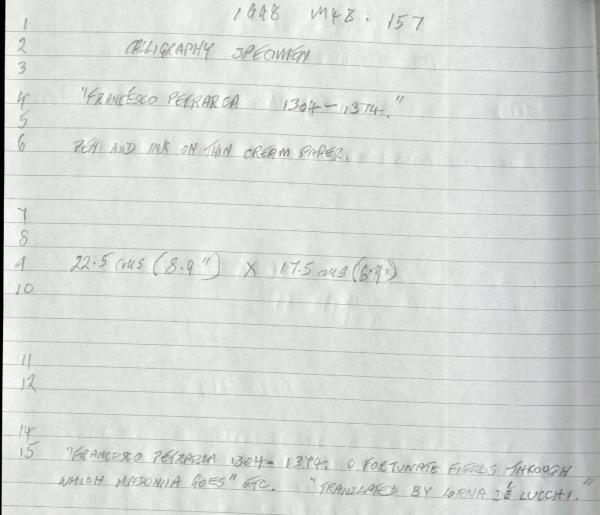 1998 M48. 157
1
2 CALLIGRAPHY SPECIMEN
3
4 "FRANCESCO PETRARCA 1304-1374."
5
6 PEN AND INK ON THIN CREAM PAPER.
7
8
9 22.5 cms (8.9") X 17.5 cms (6.9")
10
11
12
14
15 "FRANCESCO PETRARCA 1304-1374. O FORTUNATE FIELDS THROUGH
WHICH MADONNA GOES" ETC. "TRANSLATED BY LORNA DÉ LUCCHI."